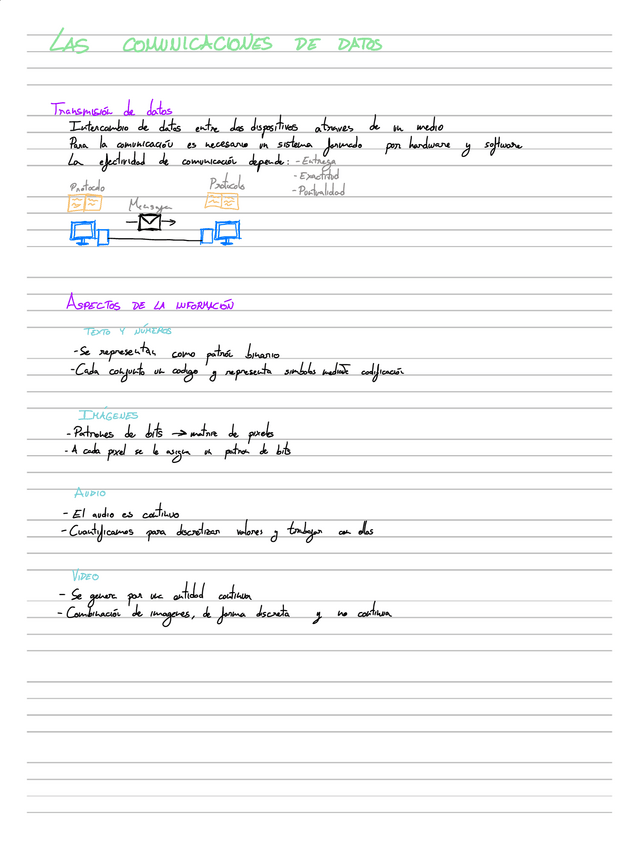 LAS COMUNICACIONES DE DATOS
Transmisión de datos
Intercambio de datos entre dos dispositivos atraves de un medio
Para la comunicación es necesario un sistema formado por hardware y software
La efectividad de comunicación depende: - Entrega
- Exactitud
- Puntualidad
Protocolo Protocolo
Mensaje
ASPECTOS DE LA INFORMACIÓN
TEXTO Y NÚMEROS
- Se representan como patrón binario
- Cada conjunto un codigo y representa simbolos mediante codificación
IMÁGENES
- Patrones de bits → matriz de pixeles
- A cada pixel se le asigna un patron de bits
AUDIO
- El audio es continuo
- Cuantificamos para discretizar valores y trabajar con ellos
VIDEO
- Se genera por una entidad continua
- Combinación de imagenes, de forma discreta y no continua